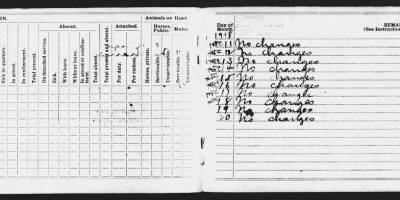 EN.
Absent.
Attached.
Animals on Hand.
Horses, Public.
Mules.
Sick in quarters.
In arrest.
In confinement.
Total present.
On detached service.
Sick.
With leave.
Without leave.
In arrest or confinement.
Total absent.
Total present and absent.
For duty.
For rations.
Horses, private.
Serviceable.
Unserviceable.
Serviceable.
Unserviceable.
Day of Month.
REMAR
(See Instruction
11 No changes
12 No changes
13 No changes
14 No changes
15 No changes
16 No changes
17 No change
18 No changes
19 No changes
20 No changes